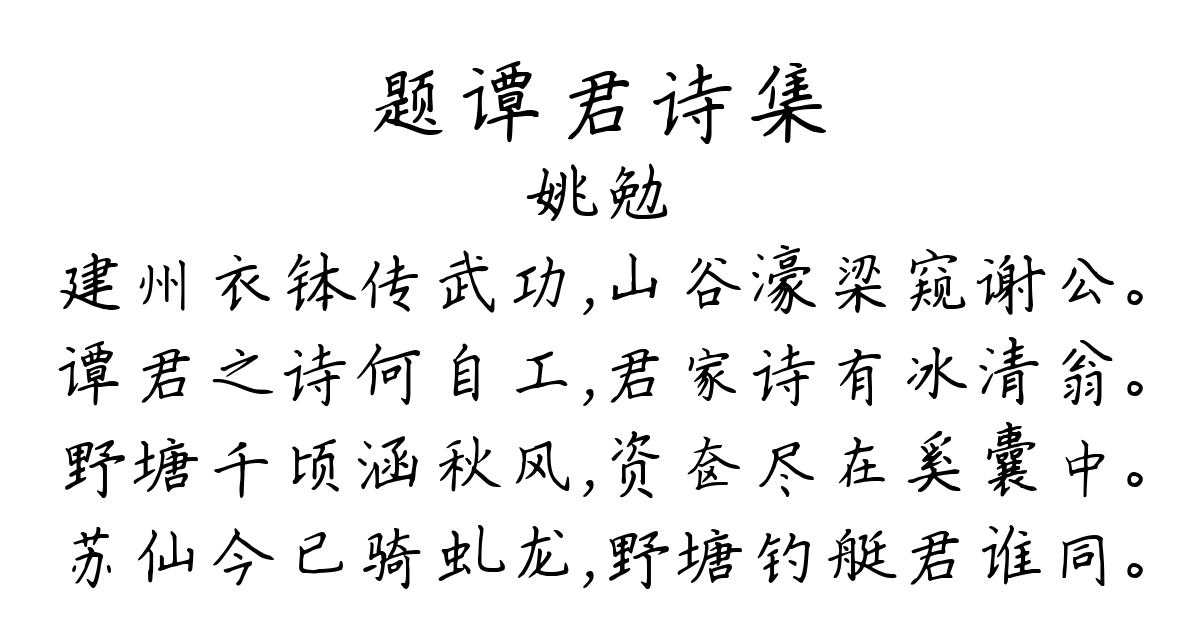 题谭君诗集
姚勉
建州衣钵传武功,山谷濠梁窥谢公。
谭君之诗何自工,君家诗有冰清翁。
野塘千顷涵秋风,资奁尽在奚囊中。
苏仙今已骑虬龙,野塘钓艇君谁同。